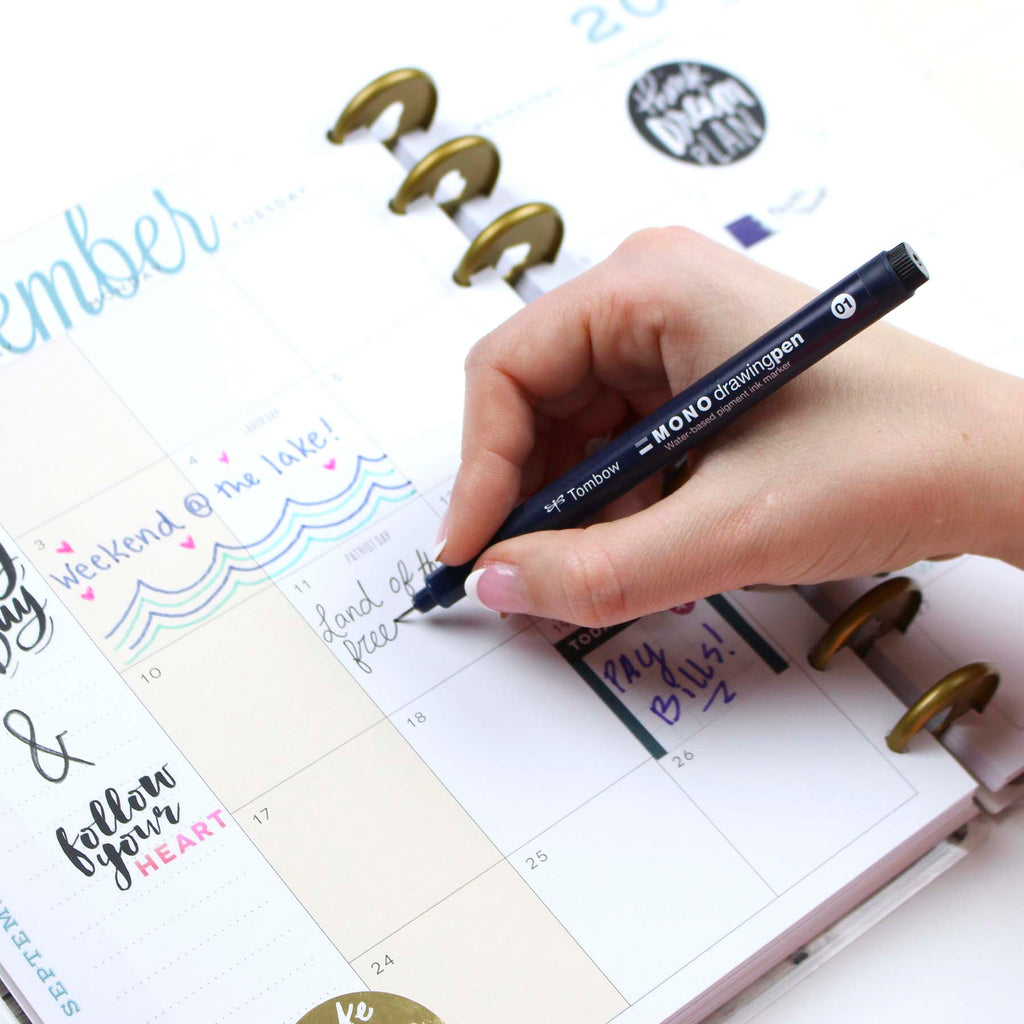 20
think
Dream
PLAN
ember
TUESDAY
LABOR DAY
3
4
5
weekend @ the lake!
PATRIOT DAY
10
11
12
Land of th
free
TODAY
PAY
BILLS!
17
18
19
&
follow
your
HEART
24
25
26
SEPTEM
Tombow
MONO drawingpen
Water-based pigment ink marker
01